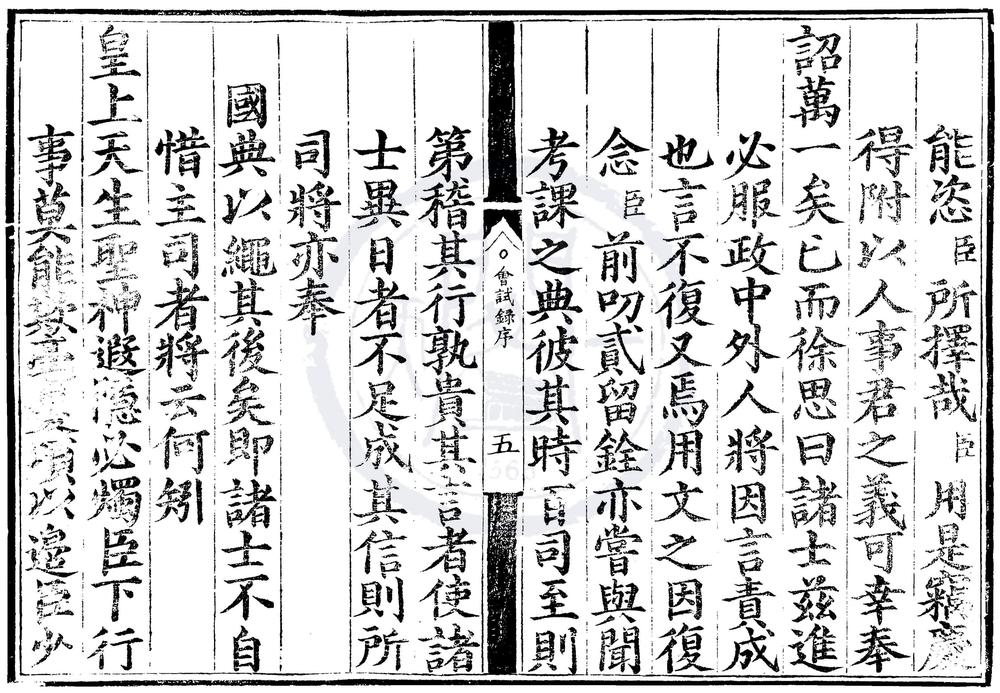 能恣臣所擇哉臣用是竊慶
得附以人事君之義可幸奉
詔萬一矣已而徐思曰諸士茲進
必服政中外人將因言責成
也言不復又焉用文之因復
念臣前叨貳留銓亦嘗與聞
考課之典彼其時百司至則
會試錄序
五
第稽其行孰貴其言者使諸
士異日者不足成其信則所
司將亦奉
國典以繩其後矣即諸士不自
惜主司者將云何矧
皇上天生聖神遐隱必燭臣下行
事莫能欺頃以邊臣少